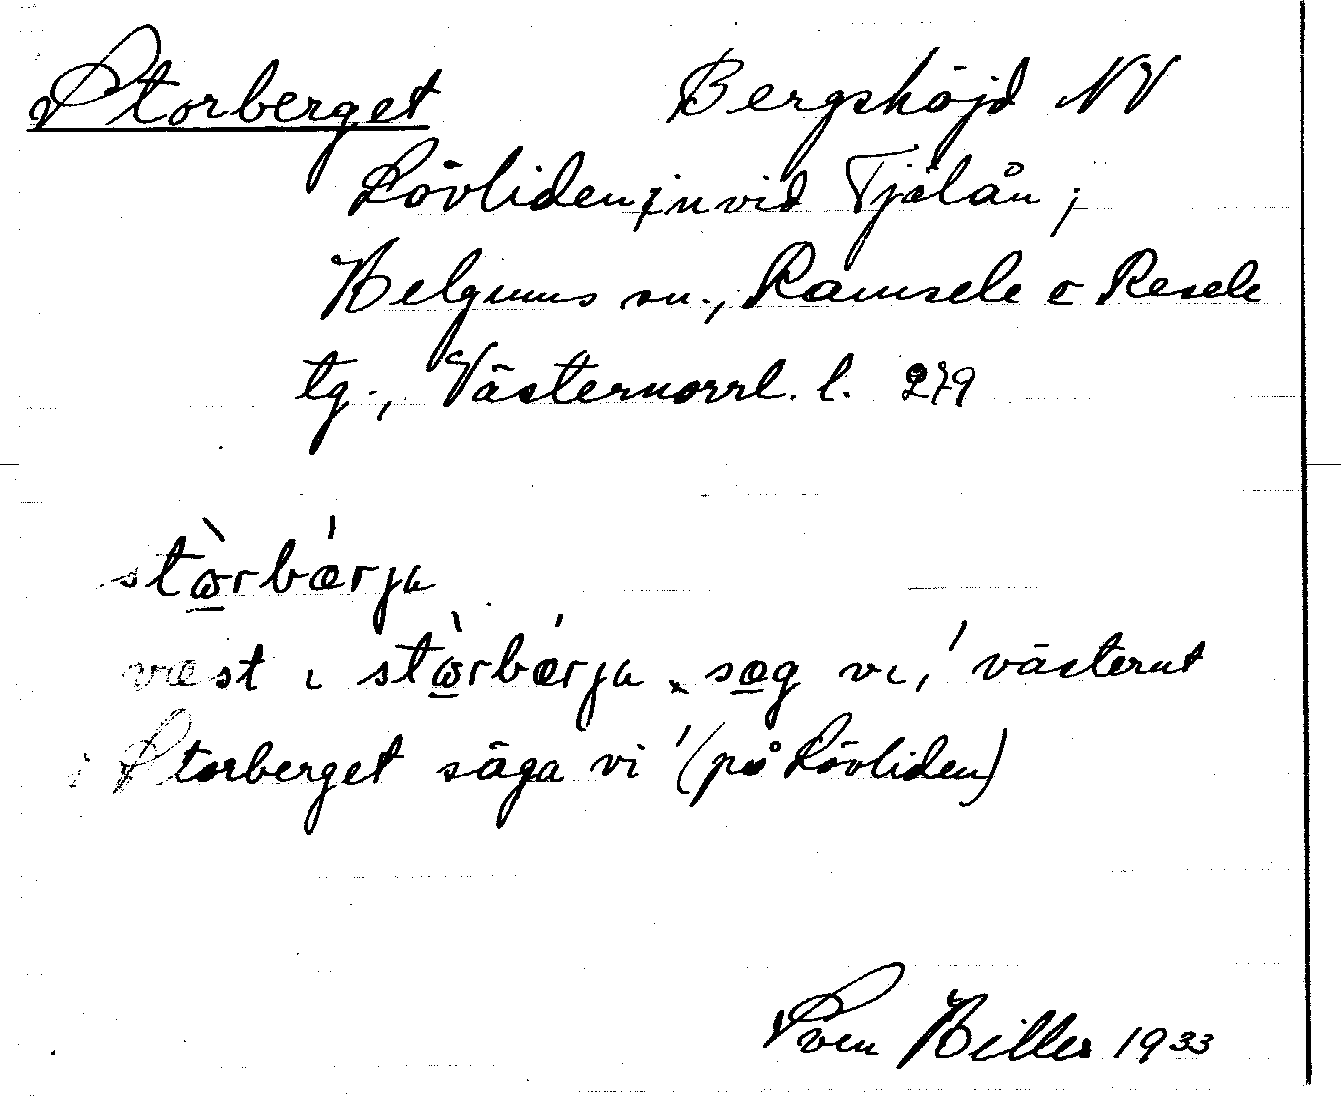 Storberget Bergshöjd NV
Lövliden, invid Tjälån;
Helgums sn., Ramsele o Resele
tg., Västernorrl. l. 279
stɷ̀rbǽrja
væst ɩ stɷ̀rbǽrja, sæg vɩ, 'västerut
i Storberget säga vi' (på Lövliden)
Sven Hiller 1933